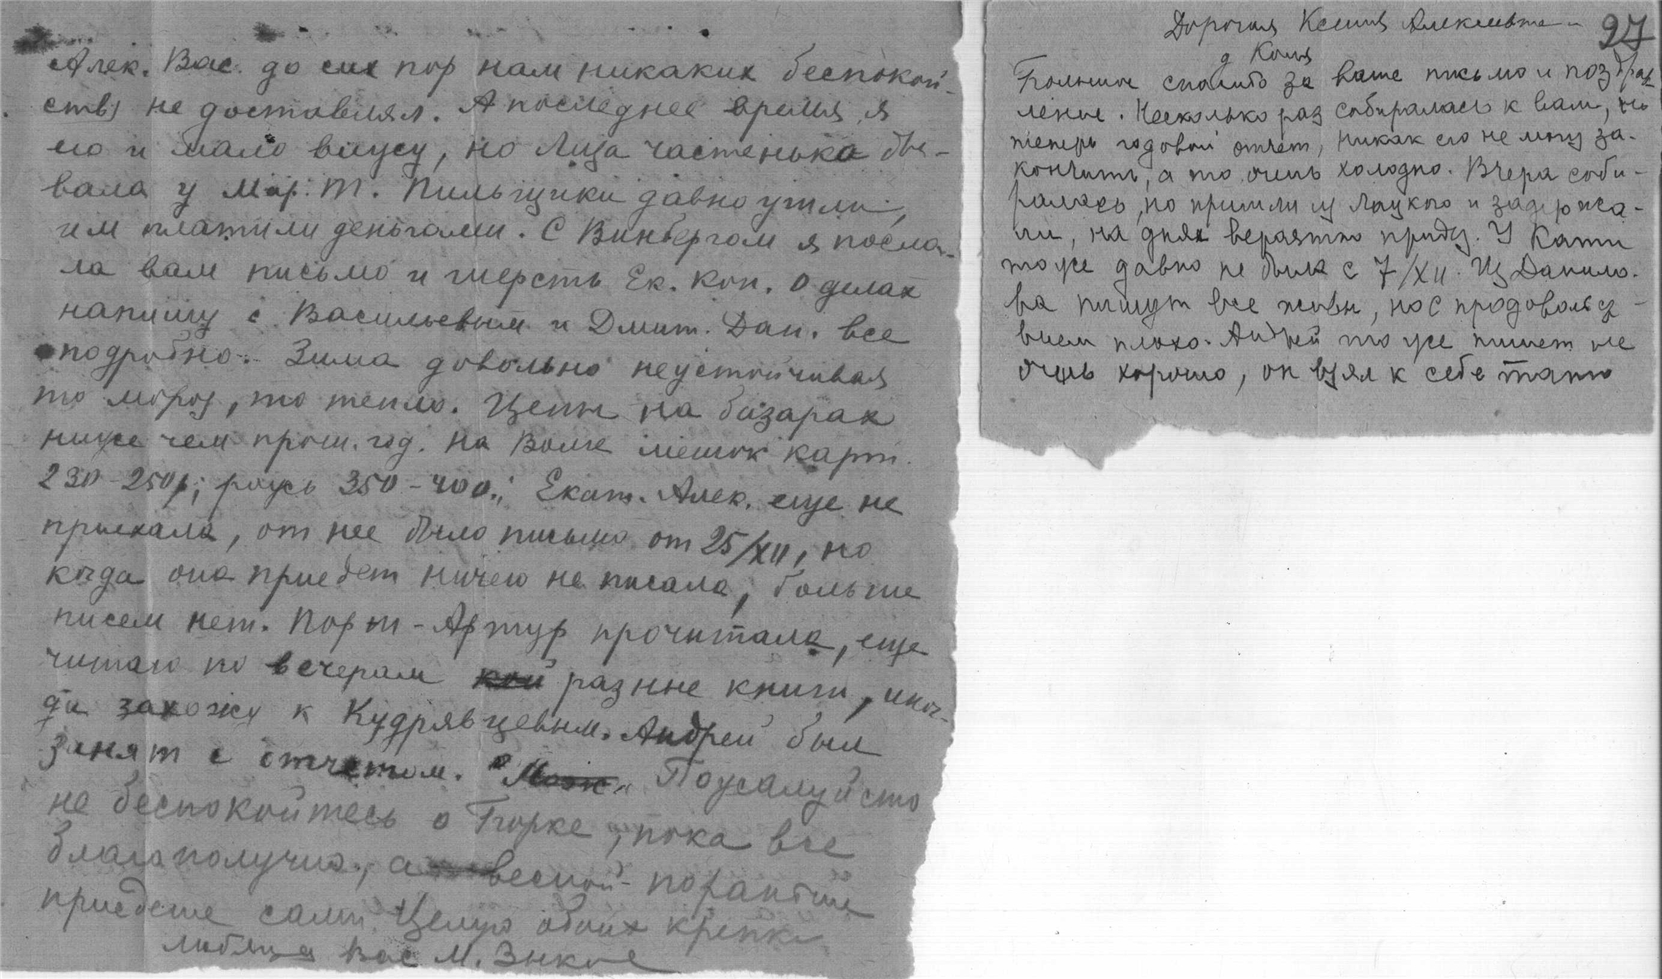 Алек. Вас. до сих пор нам никаких беспокой-
ств не доставлял. А последнее время я
его и мало вижу, но Лиза частенько бы-
вала у Мар. Т. Пильщики давно ушли,
им платили деньгами. С Винбергом я посла-
ла вам письмо и шерсть Ек. Кон. О делах
напишу с Васильевым и Дмит. Дан. все
подробно. Зима довольно неустойчивая
то мороз, то тепло. Цены на базарах
ниже чем прош. год. На Волге мешок карт.
230-250р; рожь 350-400.; Екат. Алек. еще не
приехала, от нее было письмо от 25/XII, но
когда она приедет ничего не писала, больше
писем нет. Порт-Артур прочитала, еще
читаю по вечерам разные книги, иног-
да захожу к Кудрявцевым. Андрей был
занят с отчетом. Пожалуйста
не беспокойтесь о Горке, пока все
благополучно, а весной пораньше
приедете сами. Целую обоих крепко
любящая Вас М.
97
Дорогая Ксения Алексеевна
и Коля
Большое спасибо за ваше письмо и поздрав-
ление. Несколько раз собиралась к вам, но
теперь годовой отчет, никак его не могу за-
кончить, а то очень холодно. Вчера соби-
ралась, но пришли и задержа-
ли, на днях вероятно приду. У Кати
тоже давно не была с 7/XII. Из Данило-
ва пишут все живы, но с продовольст-
вием плохо. Андрей тоже пишет не
очень хорошо, он взял к себе